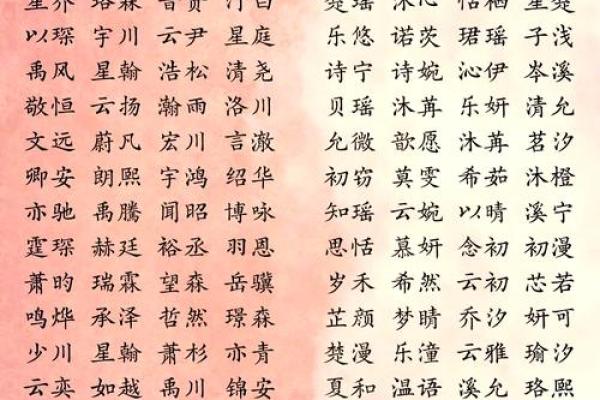 以琛 宇川 云尹 星庭 乐悠 诺茨 珺瑶 子浅
禹风 星翰 浩松 清尧 诗宁 诗婉 沁伊 岑溪
敬恒 云扬 瀚雨 洛川 贝瑶 沐苒 乐妍 清允
文远 蔚凡 宏川 言澈 允微 歆愿 沐苒 茗汐
卿安 朗熙 宇鸿 绍华 初窈 莫雯 希茹 沐橙
亦驰 禹腾 闻昭 博咏 知瑶 云婉 以晴 溪宁
霆琛 赫廷 裕丞 羽恩 思恬 慕妍 念初 初漫
萧昀 瑞霖 望森 岳骥 岁禾 希然 云初 芯若
鸣烨 承泽 哲然 璟森 芷颜 梦晴 乔汐 妍可
少川 星翰 萧杉 亦青 楚漫 乐潼 云雅 瑜汐
云奕 如越 禹川 锦安 夏和 温语 溪允 珞熙